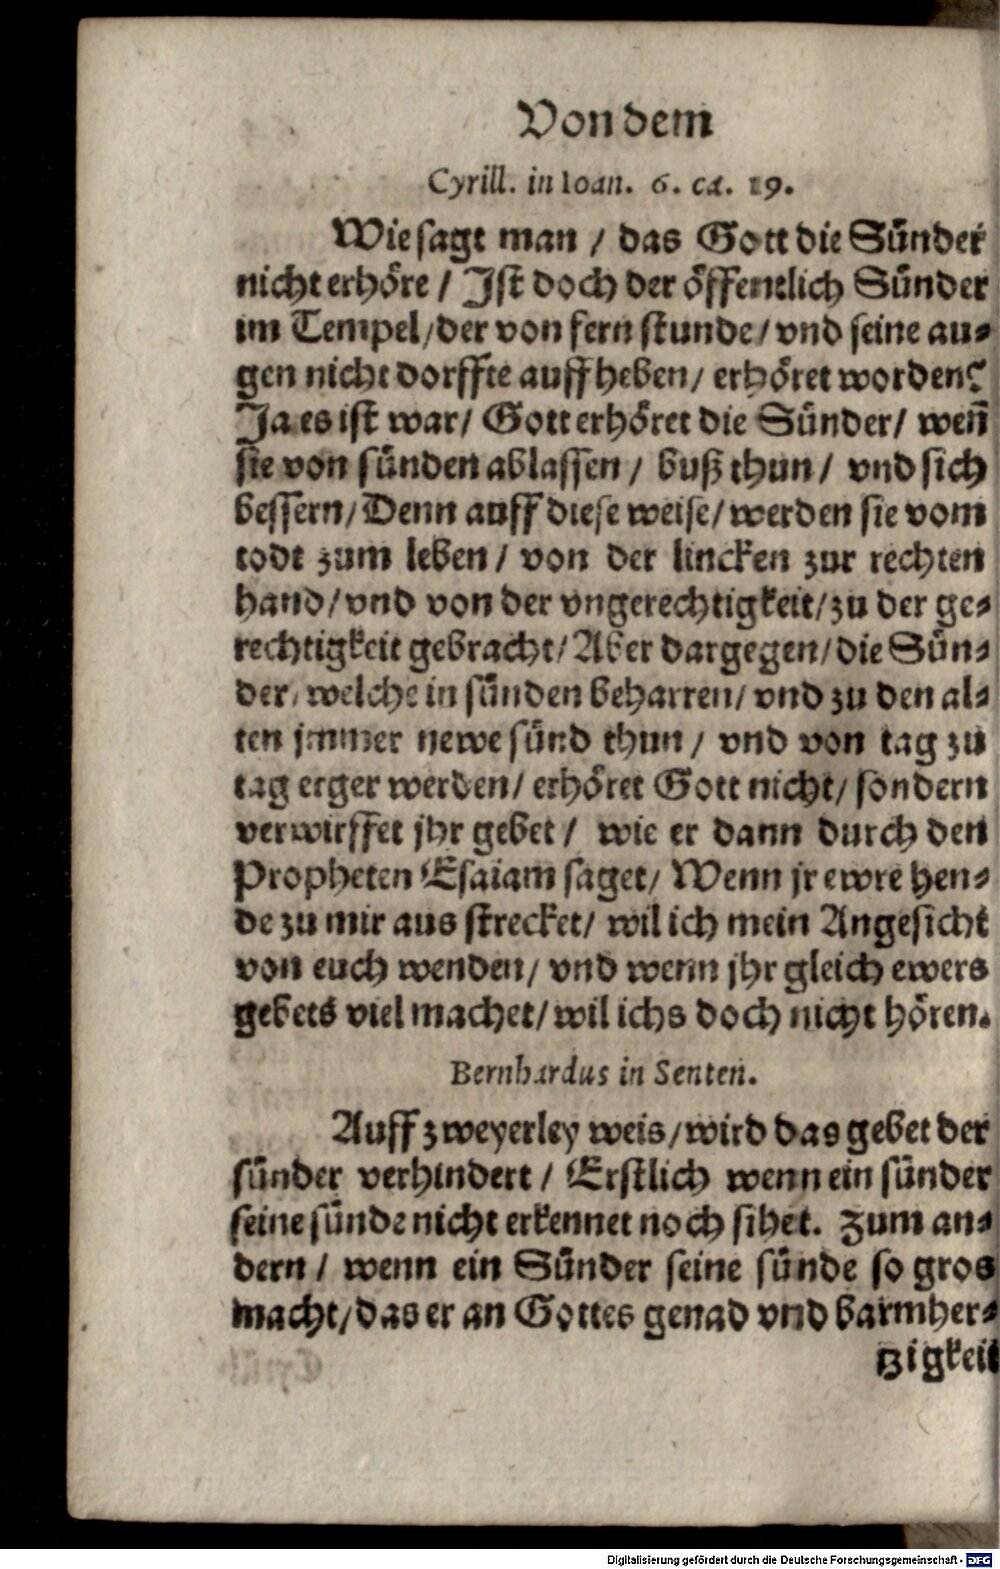 Von dem
Cyrill. in Ioan. 6. ca. 19.
Wie sagt man / das Gott die Sünder
nicht erhöre / Jst doch der öffentlich Sünder
im Tempel / der von fern stunde / vnd seine au-
gen nicht dorffte auff heben / erhöret worden?
Ja es ist war / Gott erhöret die Sünder / weñ
sie von sünden ablassen / buß thun / vnd sich
bessern / Denn auff diese weise / werden sie vom
todt zum leben / von der lincken zur rechten
hand / vnd von der vngerechtigkeit / zu der ge-
rechtigkeit gebracht / Aber dargegen / die Sün-
der / welche in sünden beharren / vnd zu den al-
ten jmmer newe sünd thun / vnd von tag zu
tag erger werden / erhöret Gott nicht / sondern
verwirffet jhr gebet / wie er dann durch den
Propheten Esaiam saget / Wenn jr ewre hen-
de zu mir aus strecket / wil ich mein Angesicht
von euch wenden / vnd wenn jhr gleich ewers
gebets viel machet / wil ichs doch nicht hören.
Bernhardus in Senten.
Auff zweyerley weis / wird das gebet der
sünder verhindert / Erstlich wenn ein sünder
seine sünde nicht erkennet noch sihet. Zum an-
dern / wenn ein Sünder seine sünde so gros
macht / das er an Gottes genad vnd barmher-
tzigkeit
Digitalisierung gefördert durch die Deutsche Forschungsgemeinschaft - DFG